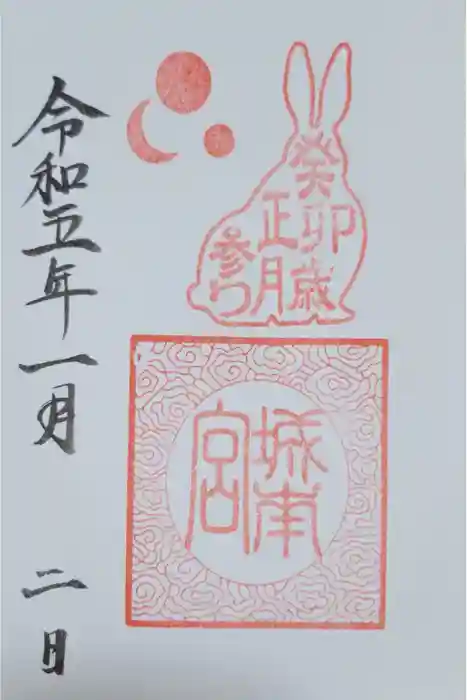 癸卯歳
正月
参り
城南
宮
令和五年一月
二日